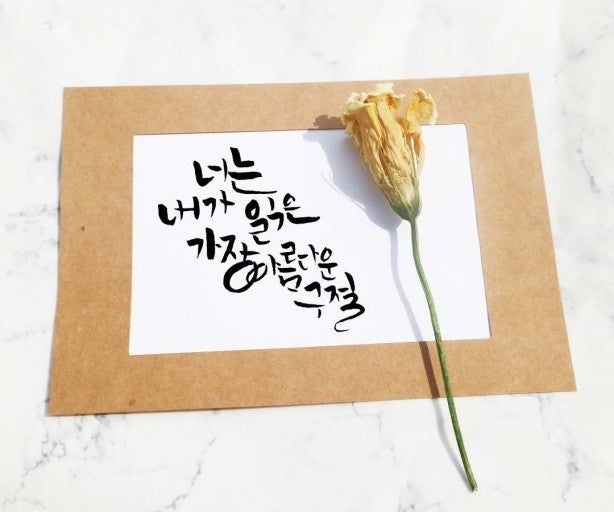 너는
내가 읽은
가장 아름다운
구절